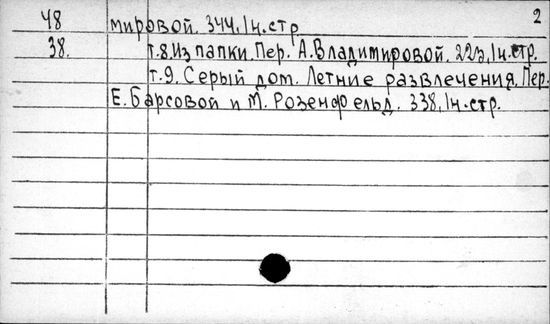 2
48 мировой. 344, 1н.стр
38. т.8. Из папки. Пер. А. Владимировой. 223, 1н.стр.
т.9. Серый дом. Летние развлечения. Пер.
Е. Барсовой и М. Розенфельд. 338, 1н.стр.